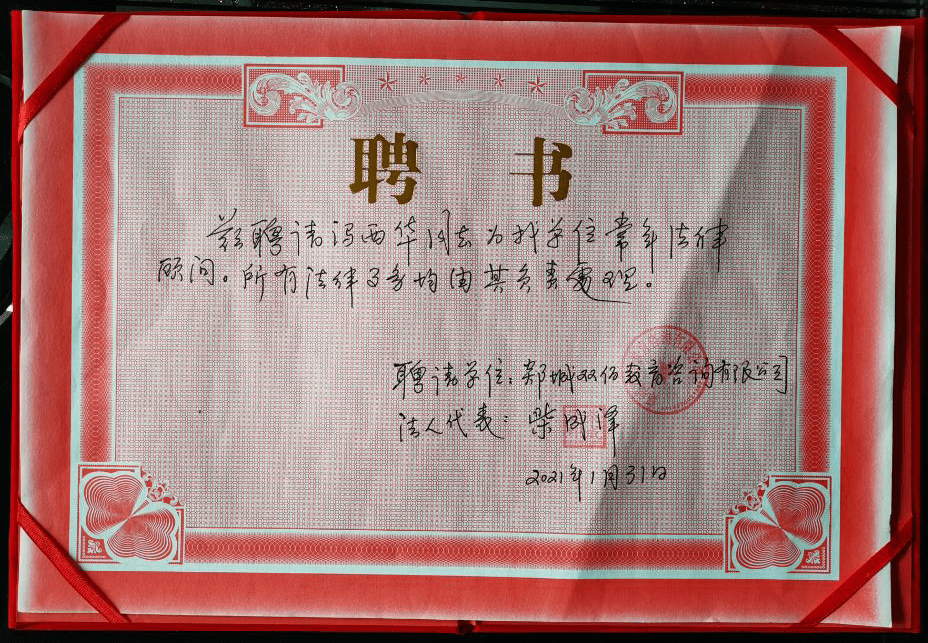 聘 书
兹聘请冯西华同志为我单位常年法律
顾问。所有法律事务均由其负责处理。
聘请单位：郯城双佰教育咨询有限公司
法人代表：柴成泽
2021年1月31日